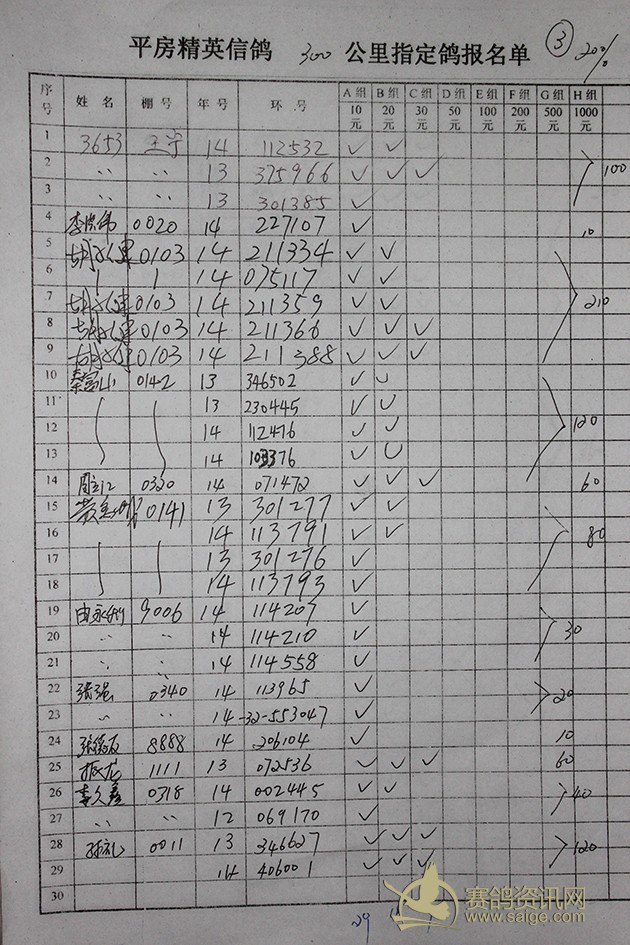 平房精英信鸽 300 公里指定鸽报名单 ③ 20%
序号 姓名 棚号 年号 环号 A组10元 B组20元 C组30元 D组50元 E组100元 F组200元 G组500元 H组1000元
1 3653 王宇 14 112532 ✓ ✓
2 〃 〃 13 375966 ✓ ✓ ✓ 100
3 〃 〃 13 301385 ✓
4 0020 14 227107 ✓ 10
5 0103 14 211334 ✓ ✓
6 14 075117 ✓ ✓
7 0103 14 211359 ✓ ✓ 210
8 0103 14 211366 ✓ ✓ ✓
9 0103 14 211388 ✓ ✓ ✓
10 秦富山 0142 13 346502 ✓ ✓
11 13 230445 ✓ ✓
12 14 112476 ✓ ✓ 120
13 14 103376 ✓ ✓
14 周立江 0320 14 071472 ✓ ✓ ✓ 60
15 0141 13 301277 ✓ ✓
16 14 113791 ✓ ✓ 80
17 13 301276 ✓
18 14 113793 ✓
19 9006 14 114207 ✓
20 〃 〃 14 114210 ✓ 30
21 〃 〃 14 114558 ✓
22 张强 0340 14 113965 ✓ 20
23 〃 〃 14-32-553047 ✓
24 8888 14 206104 ✓ 10
25 1111 13 072536 ✓ ✓ ✓ 60
26 李久鑫 0318 14 0002445 ✓ ✓ 40
27 〃 〃 12 069170 ✓
28 孙礼 0011 13 346627 ✓ ✓ ✓ 120
29 14 406001 ✓ ✓ ✓
30
29
赛鸽资讯网
www.saige.com